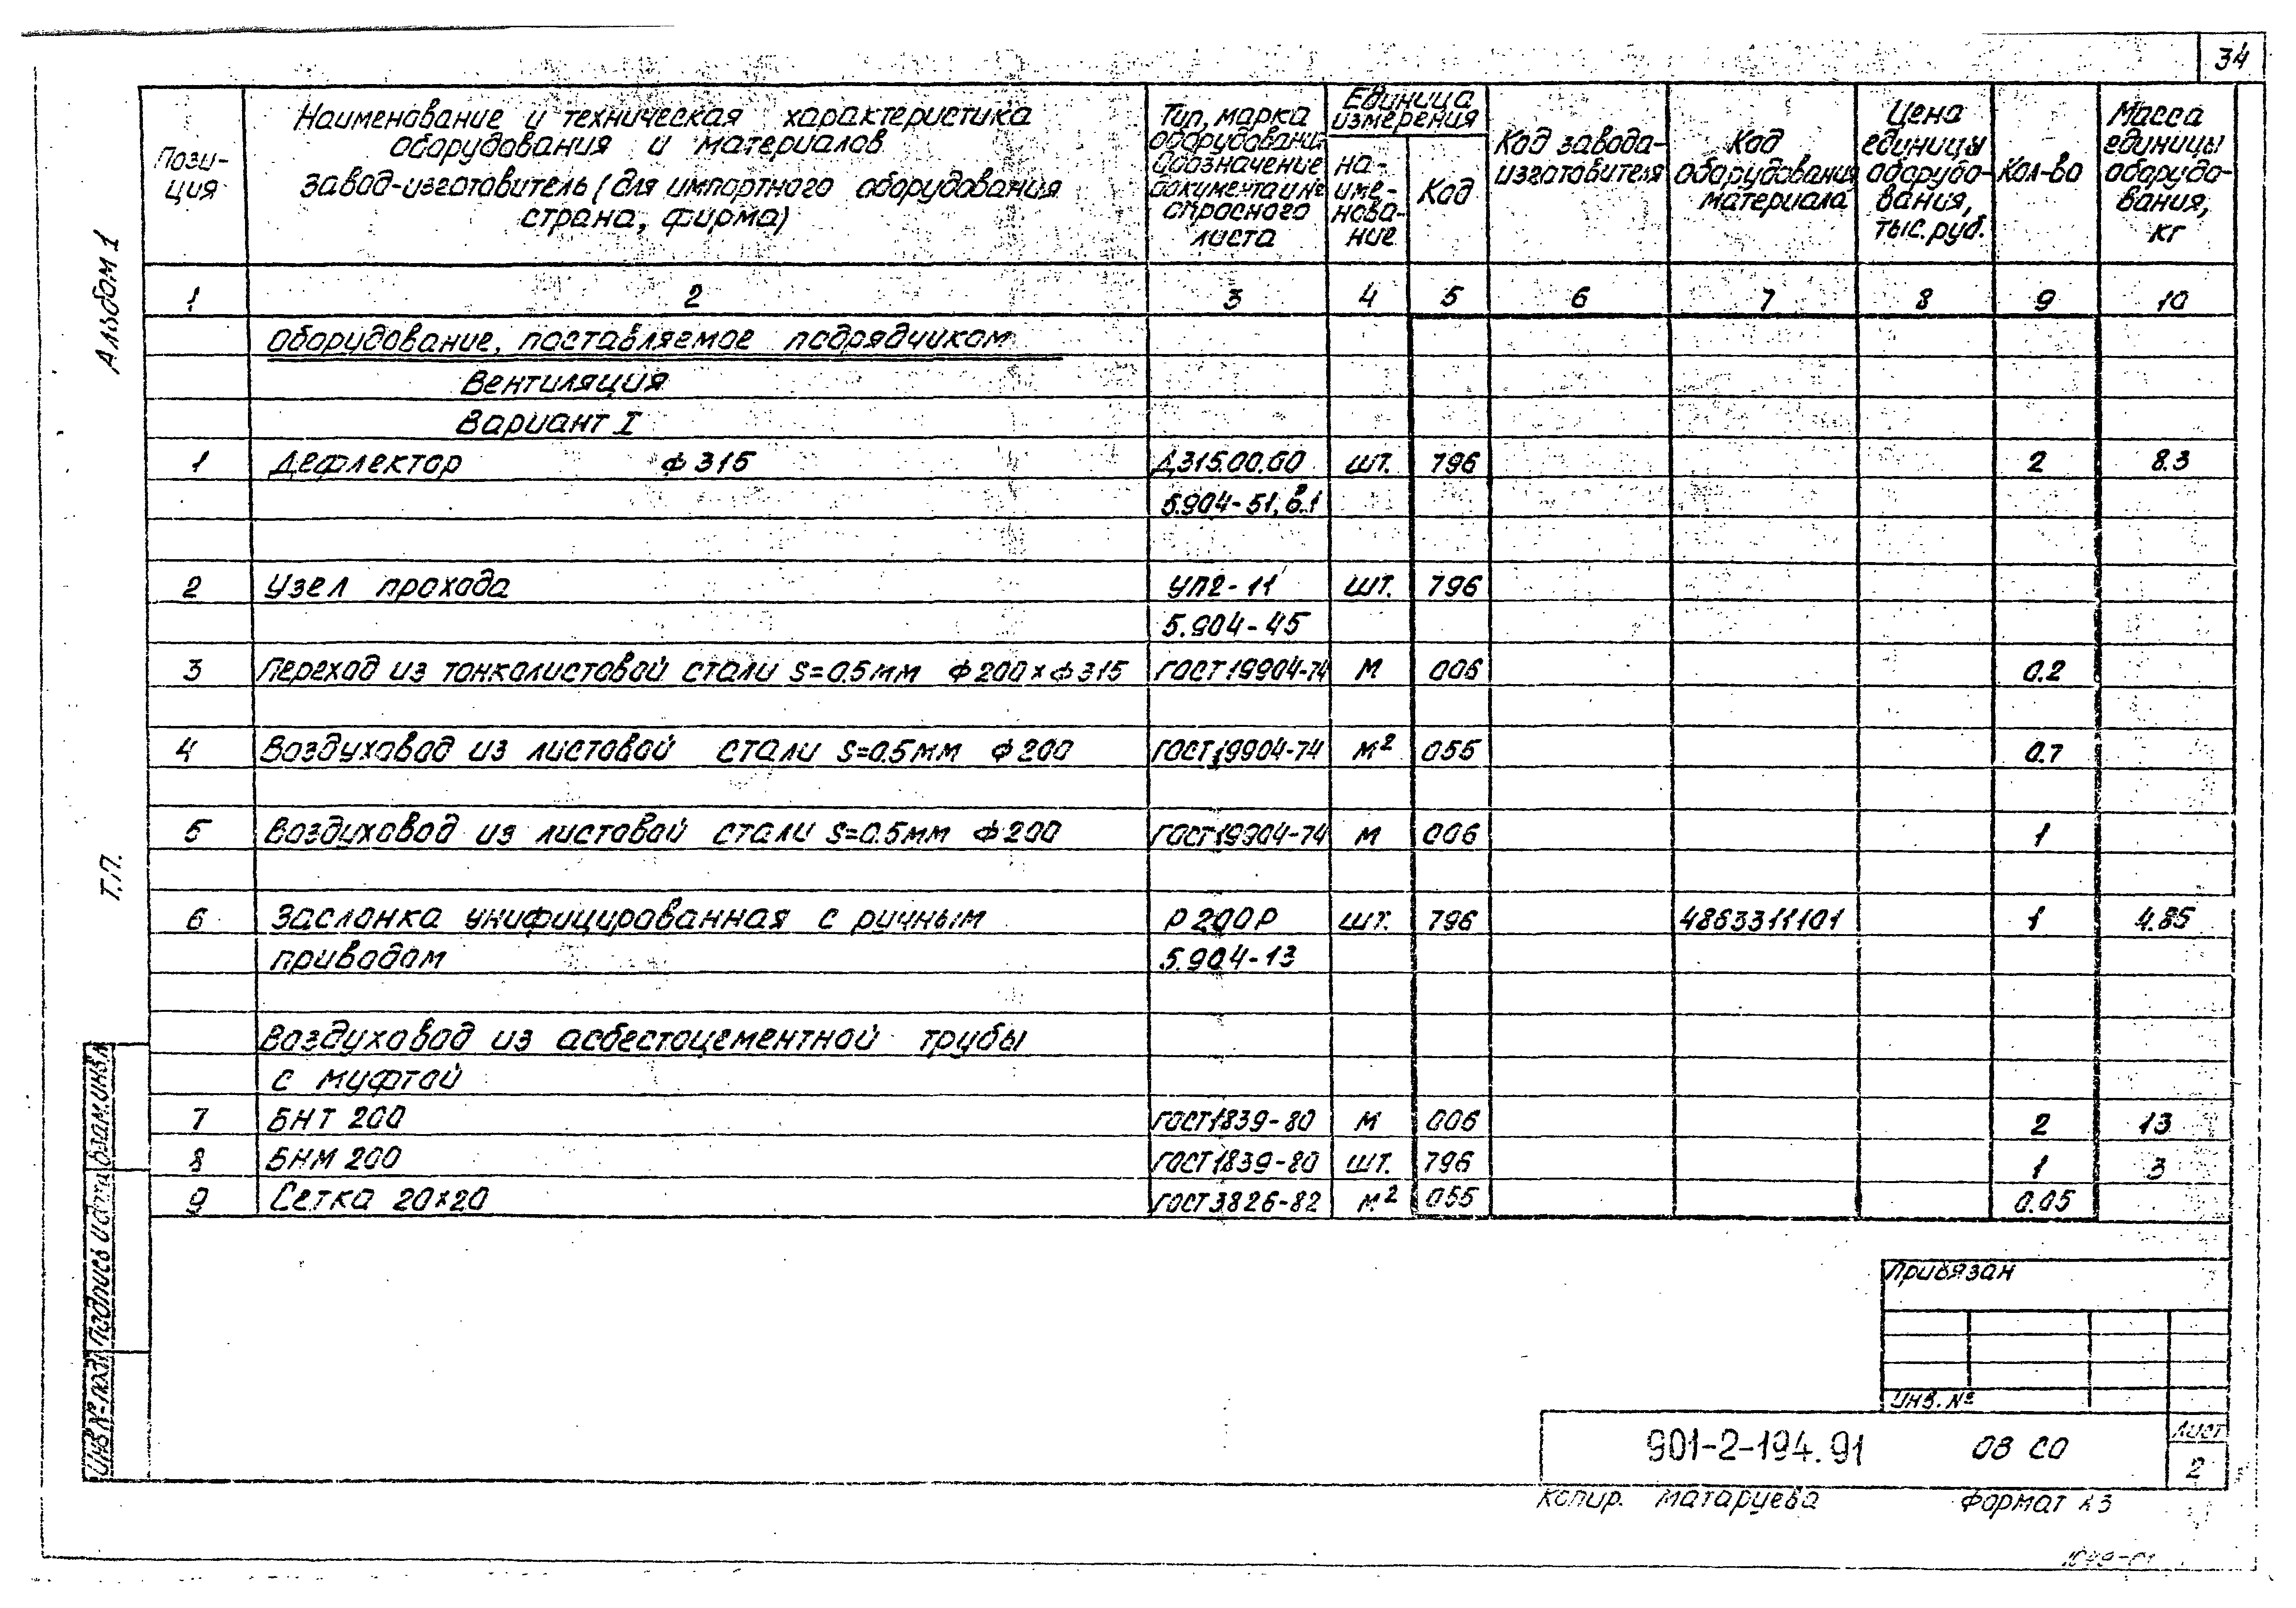 34
Альбом 1
Т.П.
Пози-
ция
Наименование и техническая характеристика
оборудования и материалов
Завод-изготовитель (для импортного оборудования
страна, фирма)
Тип, марка
оборудования
Обозначение
документа и №
опросного
листа
Единица
измерения
на-
име-
нова-
ние
Код
Код завода-
изготовителя
Код
оборудования
материала
Цена
единицы
оборудо-
вания,
тыс.руб.
Кол-во
Масса
единицы
оборудо-
вания,
кг
1 2 3 4 5 6 7 8 9 10
Оборудование, поставляемое подрядчиком
Вентиляция
Вариант I
1 Дефлектор ф 315 Д315.00.00 шт. 796 2 8.3
5.904-51, в.1
2 Узел прохода УП2-11 шт. 796
5.904-45
3 Переход из тонколистовой стали S=0.5мм ф200хф315 ГОСТ 19904-74 м 006 0.2
4 Воздуховод из листовой стали S=0.5мм ф200 ГОСТ 19904-74 м² 055 0.7
5 Воздуховод из листовой стали S=0.5мм ф200 ГОСТ 19904-74 м 006 1
6 Заслонка унифицированная с ричным Р 200Р шт. 796 4863311101 1 4.85
приводом 5.904-13
Воздуховод из асбестоцементной трубы
с муфтой
7 БНТ 200 ГОСТ 1839-80 м 006 2 13
8 БНМ 200 ГОСТ 1839-80 шт. 796 1 3
9 Сетка 20х20 ГОСТ 3826-82 м² 055 0.05
Взам.инв.№
Подпись и дата
Инв.№ подл
Привязан
Инв. №
901-2-194.91 ОВ СО
Лист
2
Копир. Матаруева Формат А3